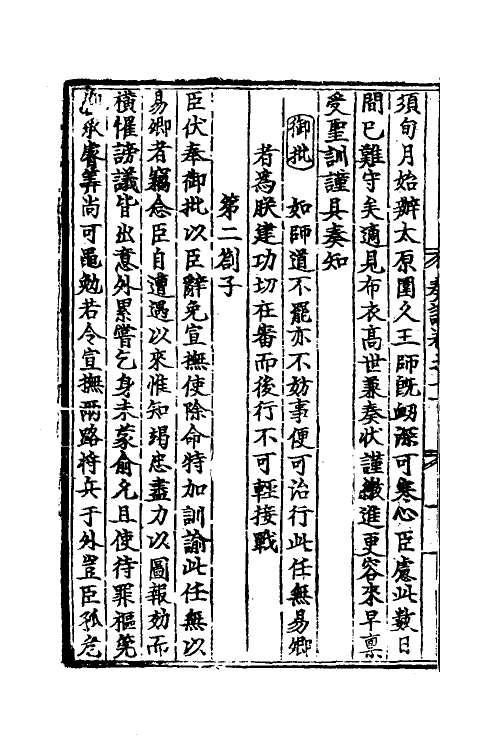 須旬月始辦太原圍久王師旣衂深可寒心臣慮此數日
間已難守矣適見布衣髙世蒹奏状謹繳進更容來早禀
受聖訓謹具奏知
御批　如師道不罷亦不妨事便可治行此任無易卿
者爲朕建功切在審而後行不可輕接戰
第二劄子
臣伏奉御批以臣辭免宣撫使除命特加訓諭此任無以
易卿者竊念臣自遭遇以來惟知竭忠盡力以圖報効而
横罹謗議皆出意外累嘗乞身未蒙俞允且使待罪樞筦
承睿筭尚可黽勉若令宣撫兩路將兵于外豈臣孤危
奏議卷之十一